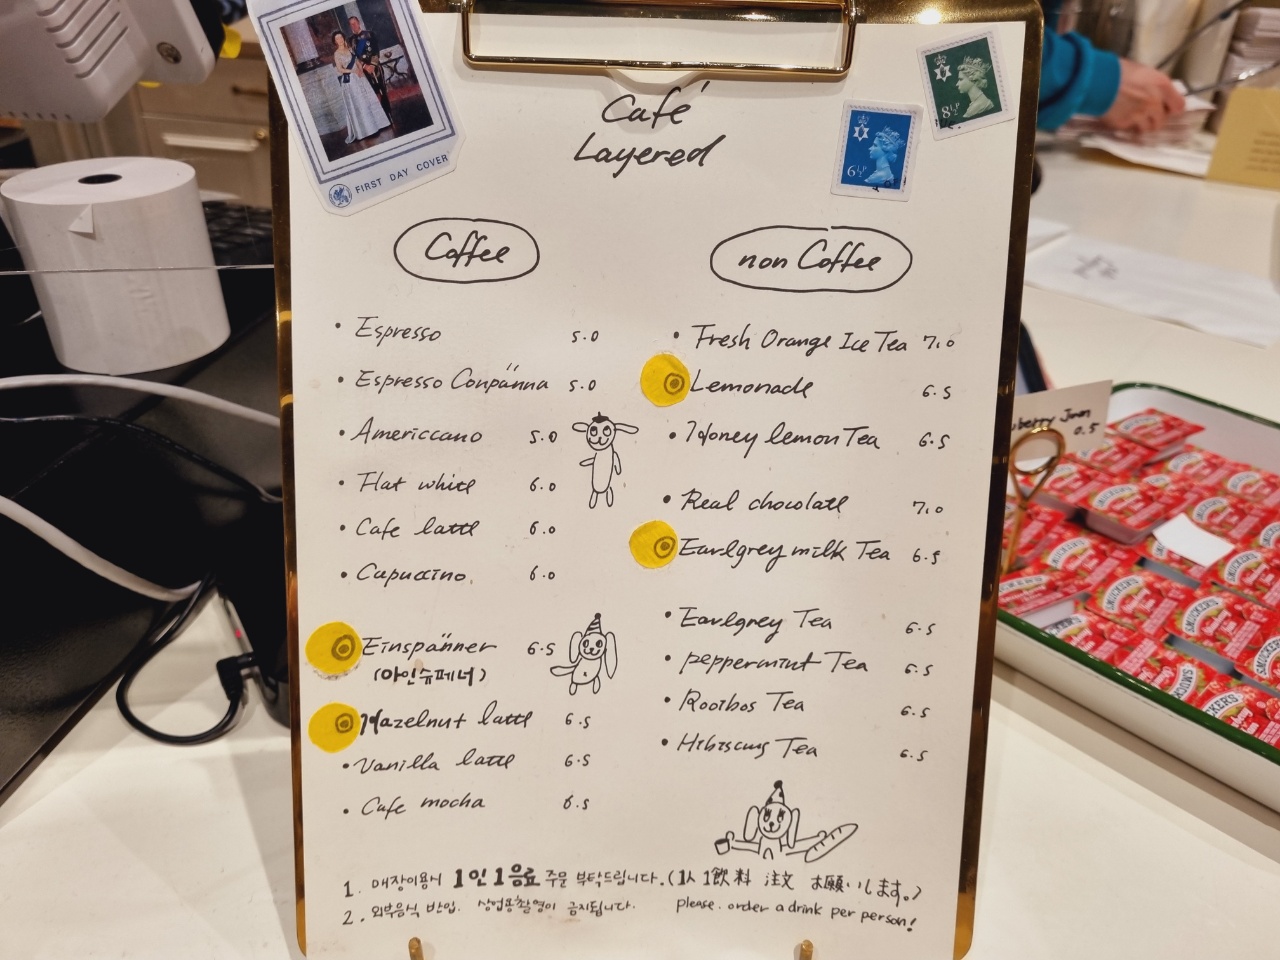 FIRST DAY COVER
6½P
8½P
Café
Layered
Coffee
• Espresso 5.0
• Espresso Conpänna 5.0
• Americcano 5.0
• Flat white 6.0
• Cafe latte 6.0
• Capuccino 6.0
Einspänner 6.5
(아인슈페너)
Hazelnut latte 6.5
• Vanilla latte 6.5
• Cafe mocha 6.5
non Coffee
• Fresh Orange Ice Tea 7.0
Lemonade 6.5
• Honey lemon Tea 6.5
• Real chocolate 7.0
Earlgrey milk Tea 6.5
• Earlgrey Tea 6.5
• peppermint Tea 6.5
• Rooibos Tea 6.5
• Hibiscus Tea 6.5
1. 매장이용시 1인 1음료 주문 부탁드립니다. (1人 1飲料 注文 お願いします。)
2. 외부음식 반입. 상업용촬영이 금지됩니다. please. order a drink per person!
Jam
0.5
SMUCKER'S
SMUCKER'S
SMUCKER'S
SMUCKER'S